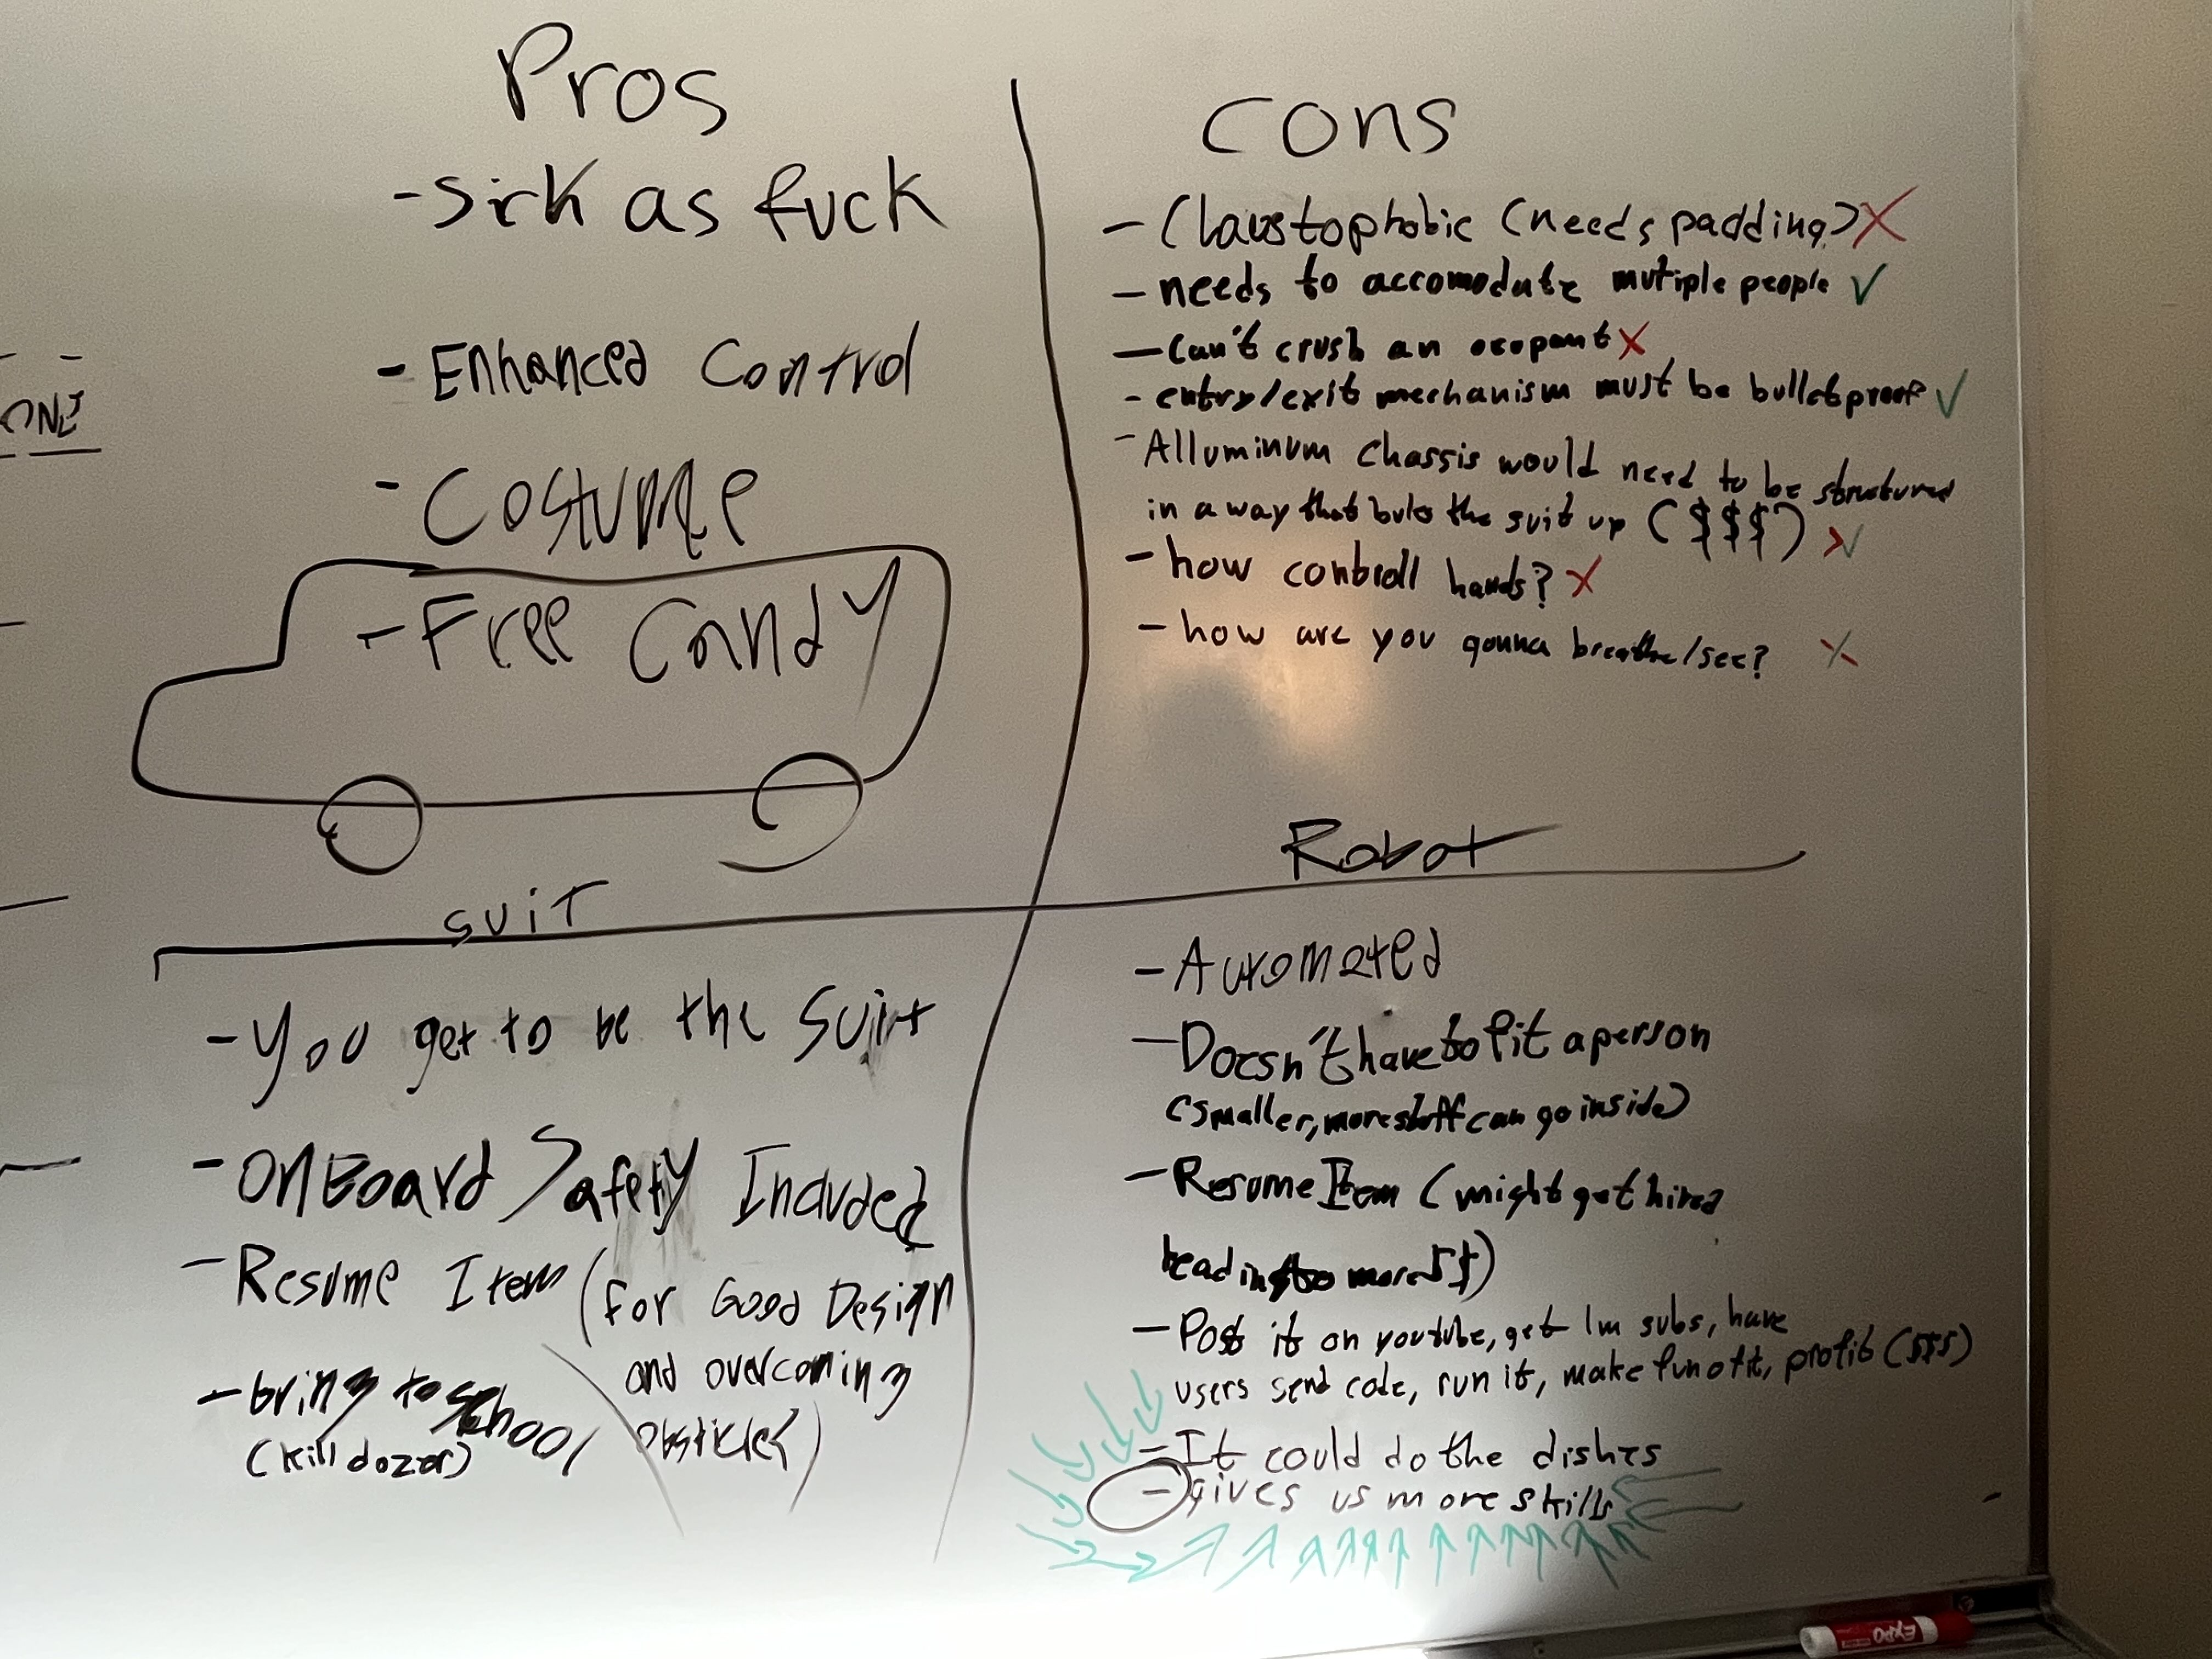 Pros
-Sick as fuck
- Enhanced Control
- Costume
- Free Candy
ONLY
Cons
- Claustophobic (needs padding) X
- needs to accomodate mutiple people ✓
- Can't crush an ocopant X
- entry/exit mechanism must be bulletproof ✓
- Alluminum chassis would need to be structured
in a way that bulks the suit up ($$$) X✓
- how controll hands? X
- how are you gonna breathe/see? X
suit
- You get to be the suit
- Onboard Safety Included
- Resume Item (for Good Design
and overcoming
obsticles)
- bring to school
(killdozer)
Robot
- Automated
- Doesn't have to fit a person
(smaller, more stuff can go inside)
- Resume Item (might get hired
leading to more $$)
- Post it on youtube, get 1m subs, have
users send code, run it, make fun of it, profit ($$$)
- It could do the dishes
- gives us more skills
EXPO